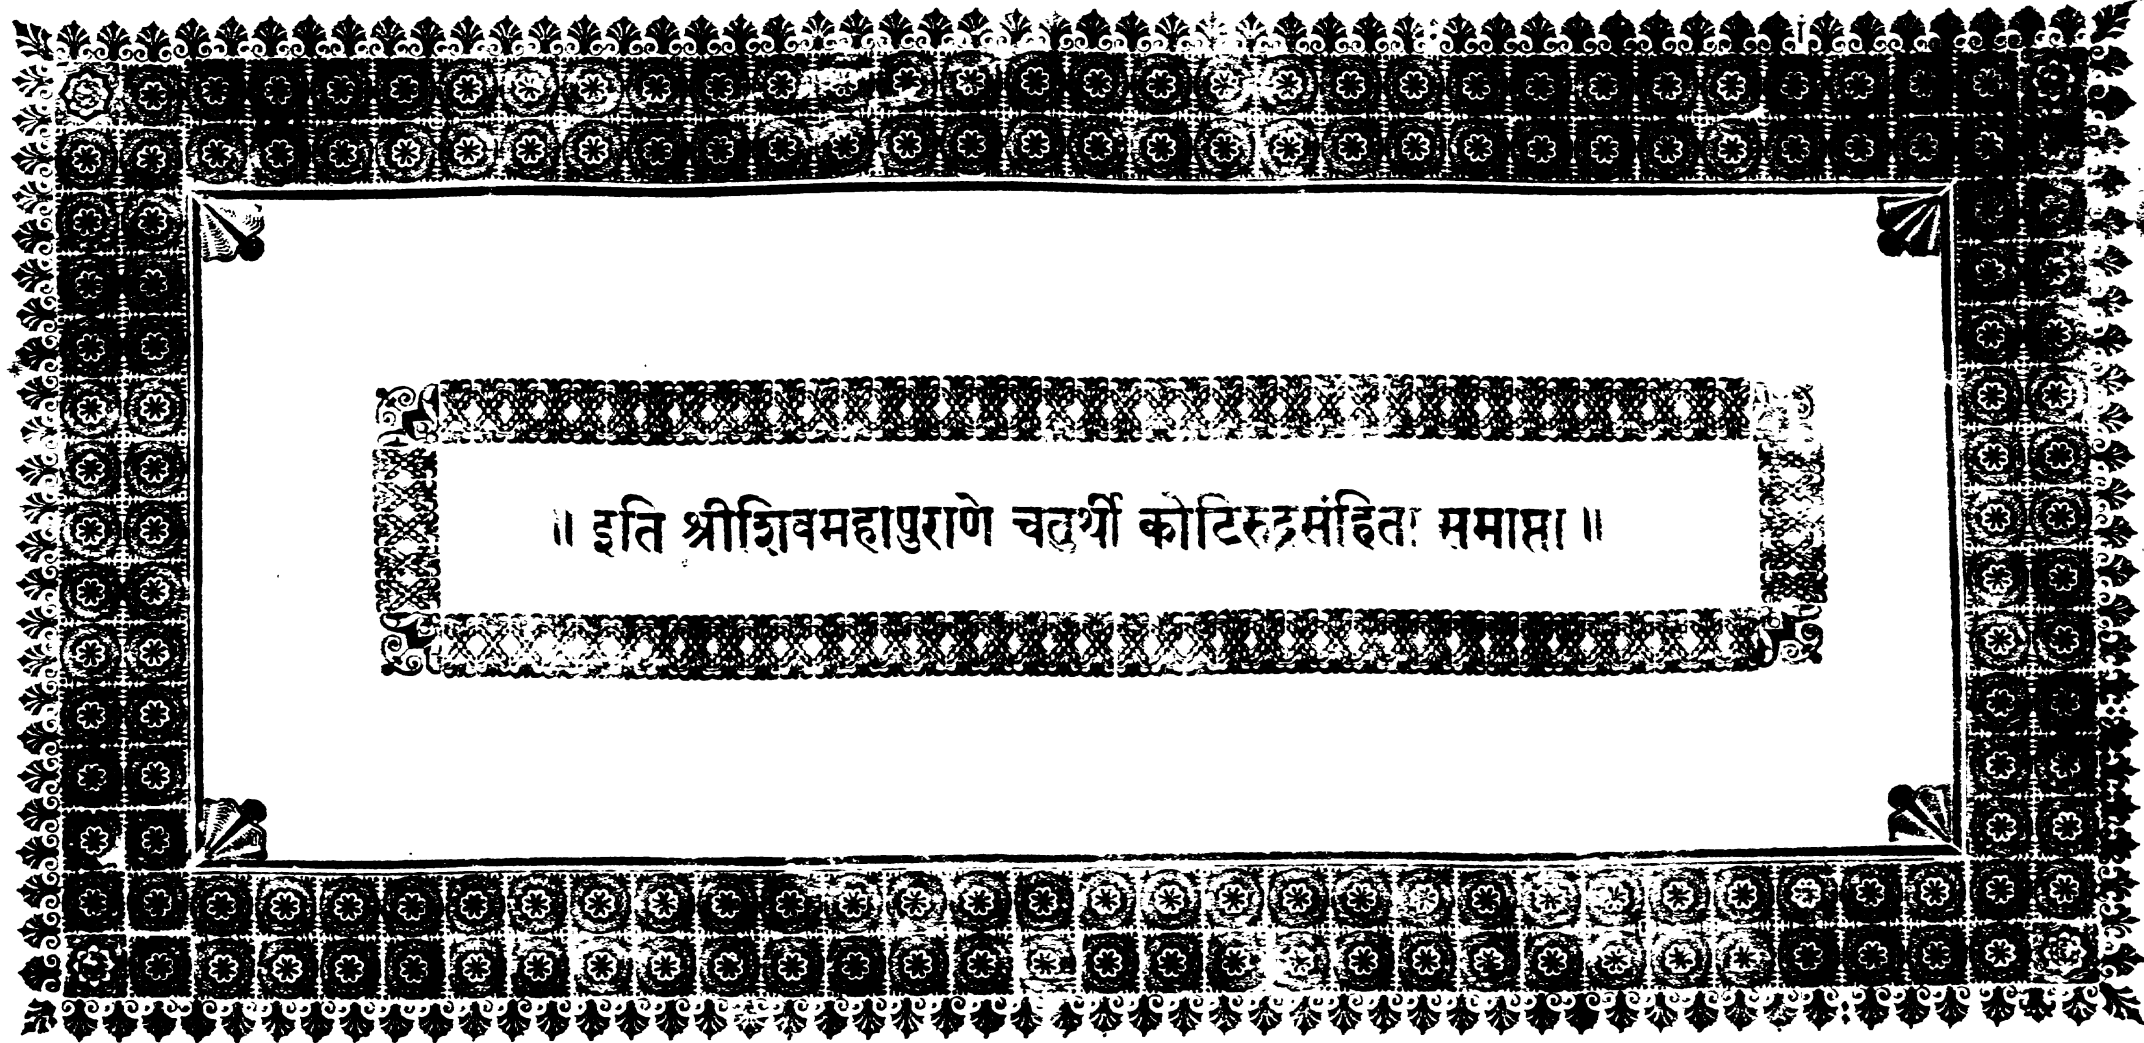 ॥ इति श्रीशिवमहापुराणे चतुर्थी कोटिरुद्रसंहिता समाप्ता ॥